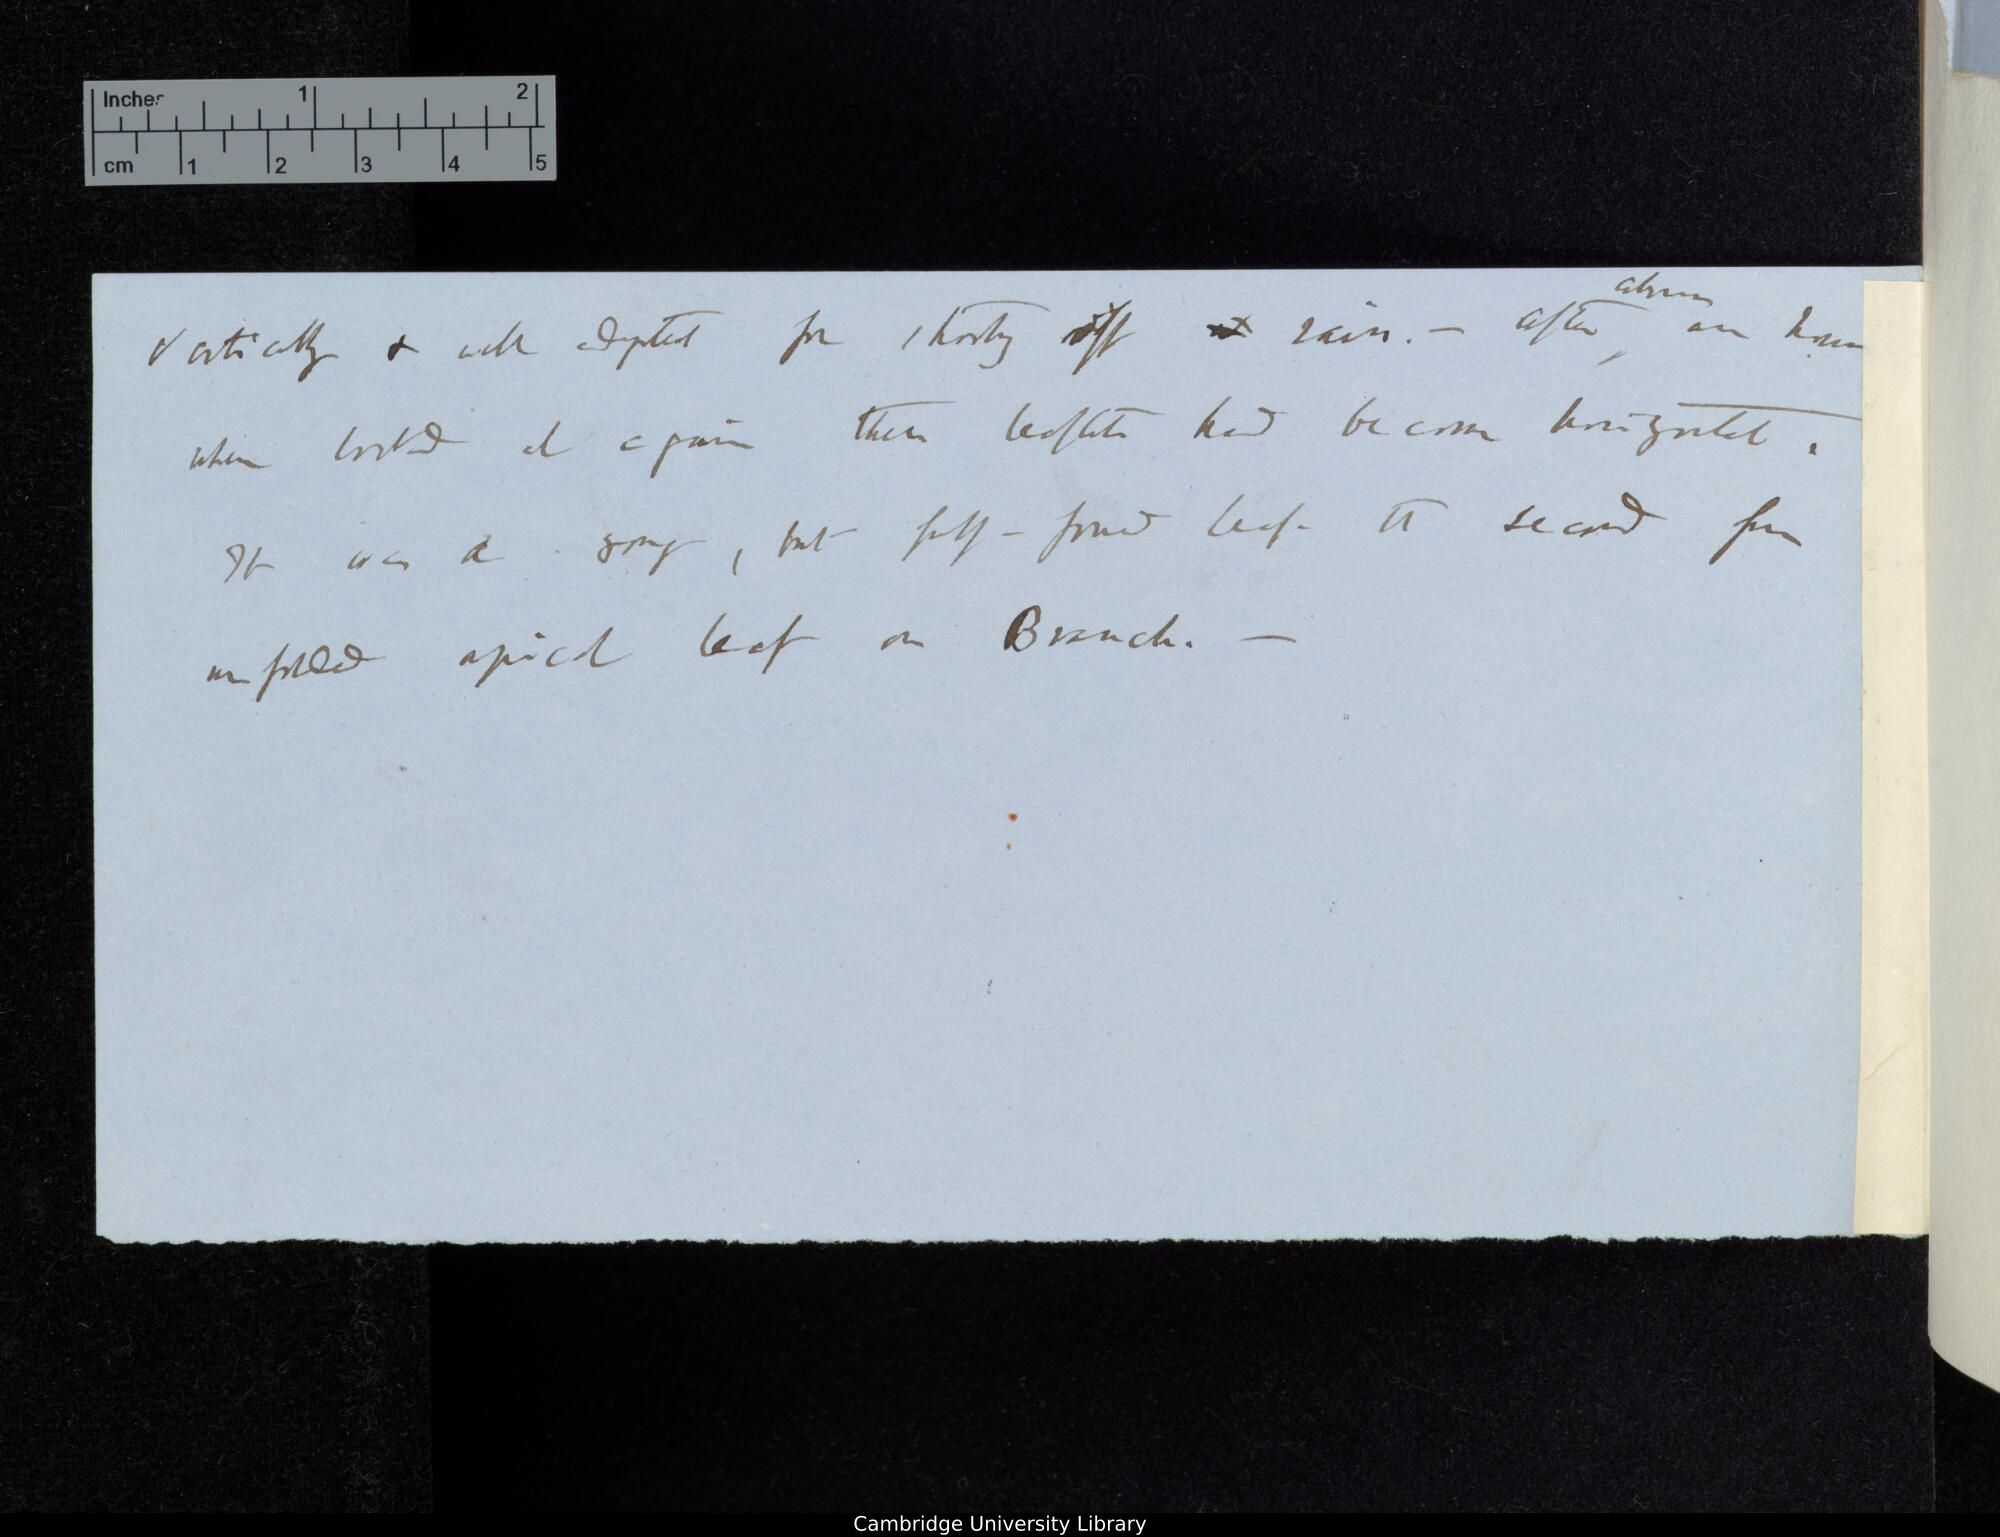 Inches 1 2
cm 1 2 3 4 5
vertically & well adapted for shooting off rain. — after about an hour
when looked at again these leaflets had become horizontal.
It was a young, but full-formed leaf the second from
unfolded apical leaf on Branch. —
Cambridge University Library